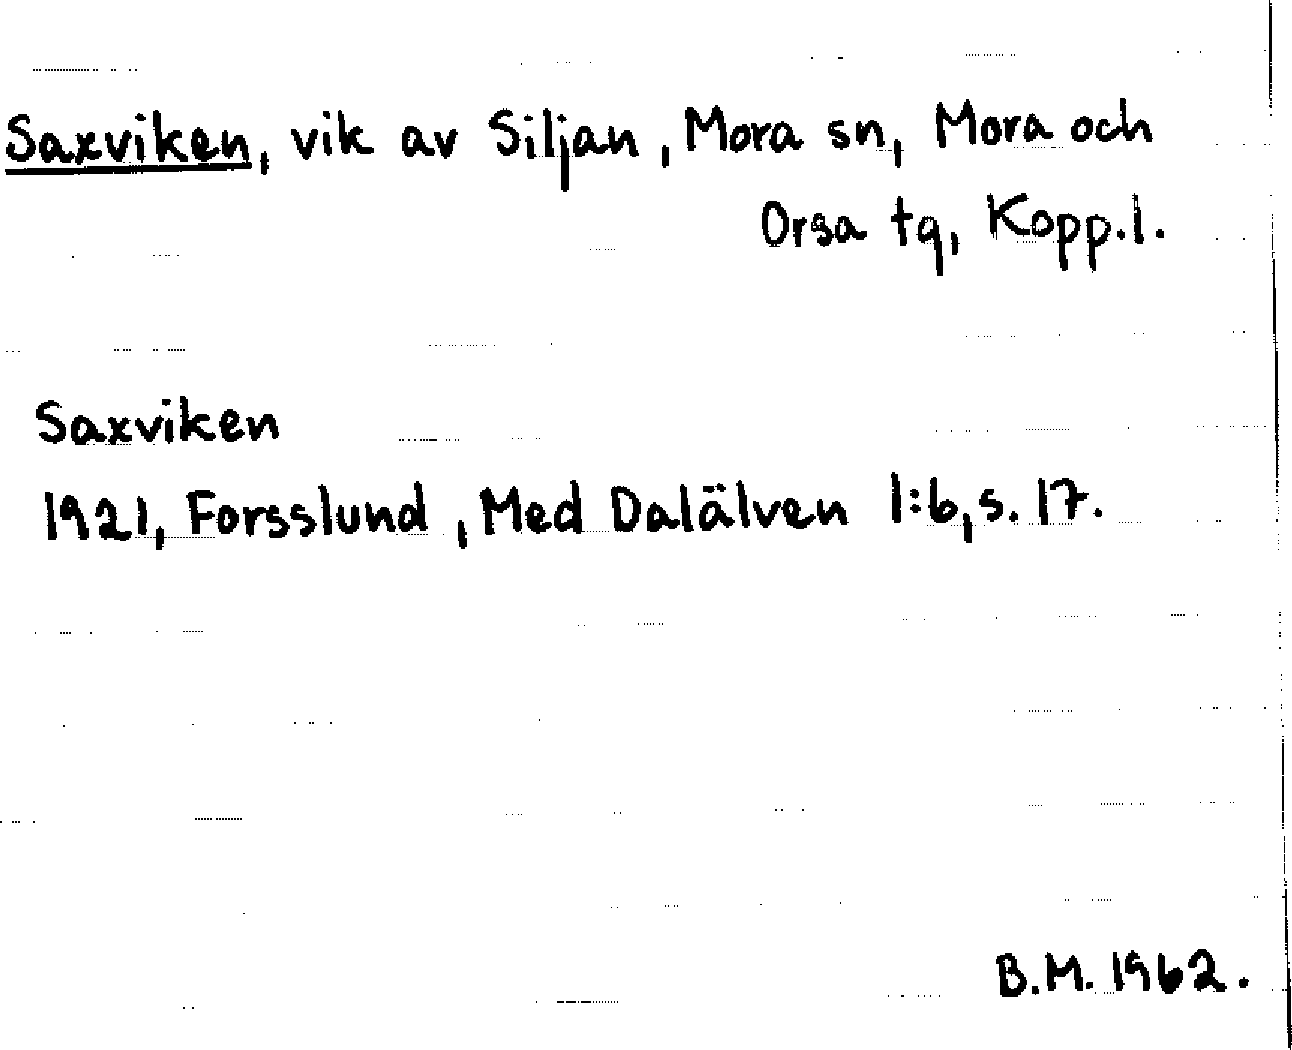 Saxviken, vik av Siljan, Mora sn, Mora och
Orsa tg, Kopp.l.
Saxviken
1921, Forsslund, Med Dalälven 1:6, s. 17.
B.M. 1962.